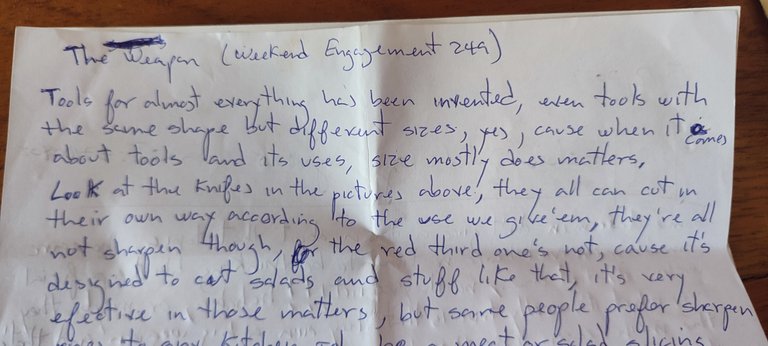 The Weapon (Weekend Engagement 249)
Tools for almost everything has been invented, even tools with
the same shape but different sizes, yes, cause when it comes
about tools and its uses, size mostly does matters,
Look at the knifes in the pictures above, they all can cut in
their own way according to the use we give'em, they're all
not sharpen though, for the red third one's not, cause it's
designed to cut salads and stuff like that, it's very
efective in those matters, but some people prefer sharpen
to any kitchen be a meat or salad slicing